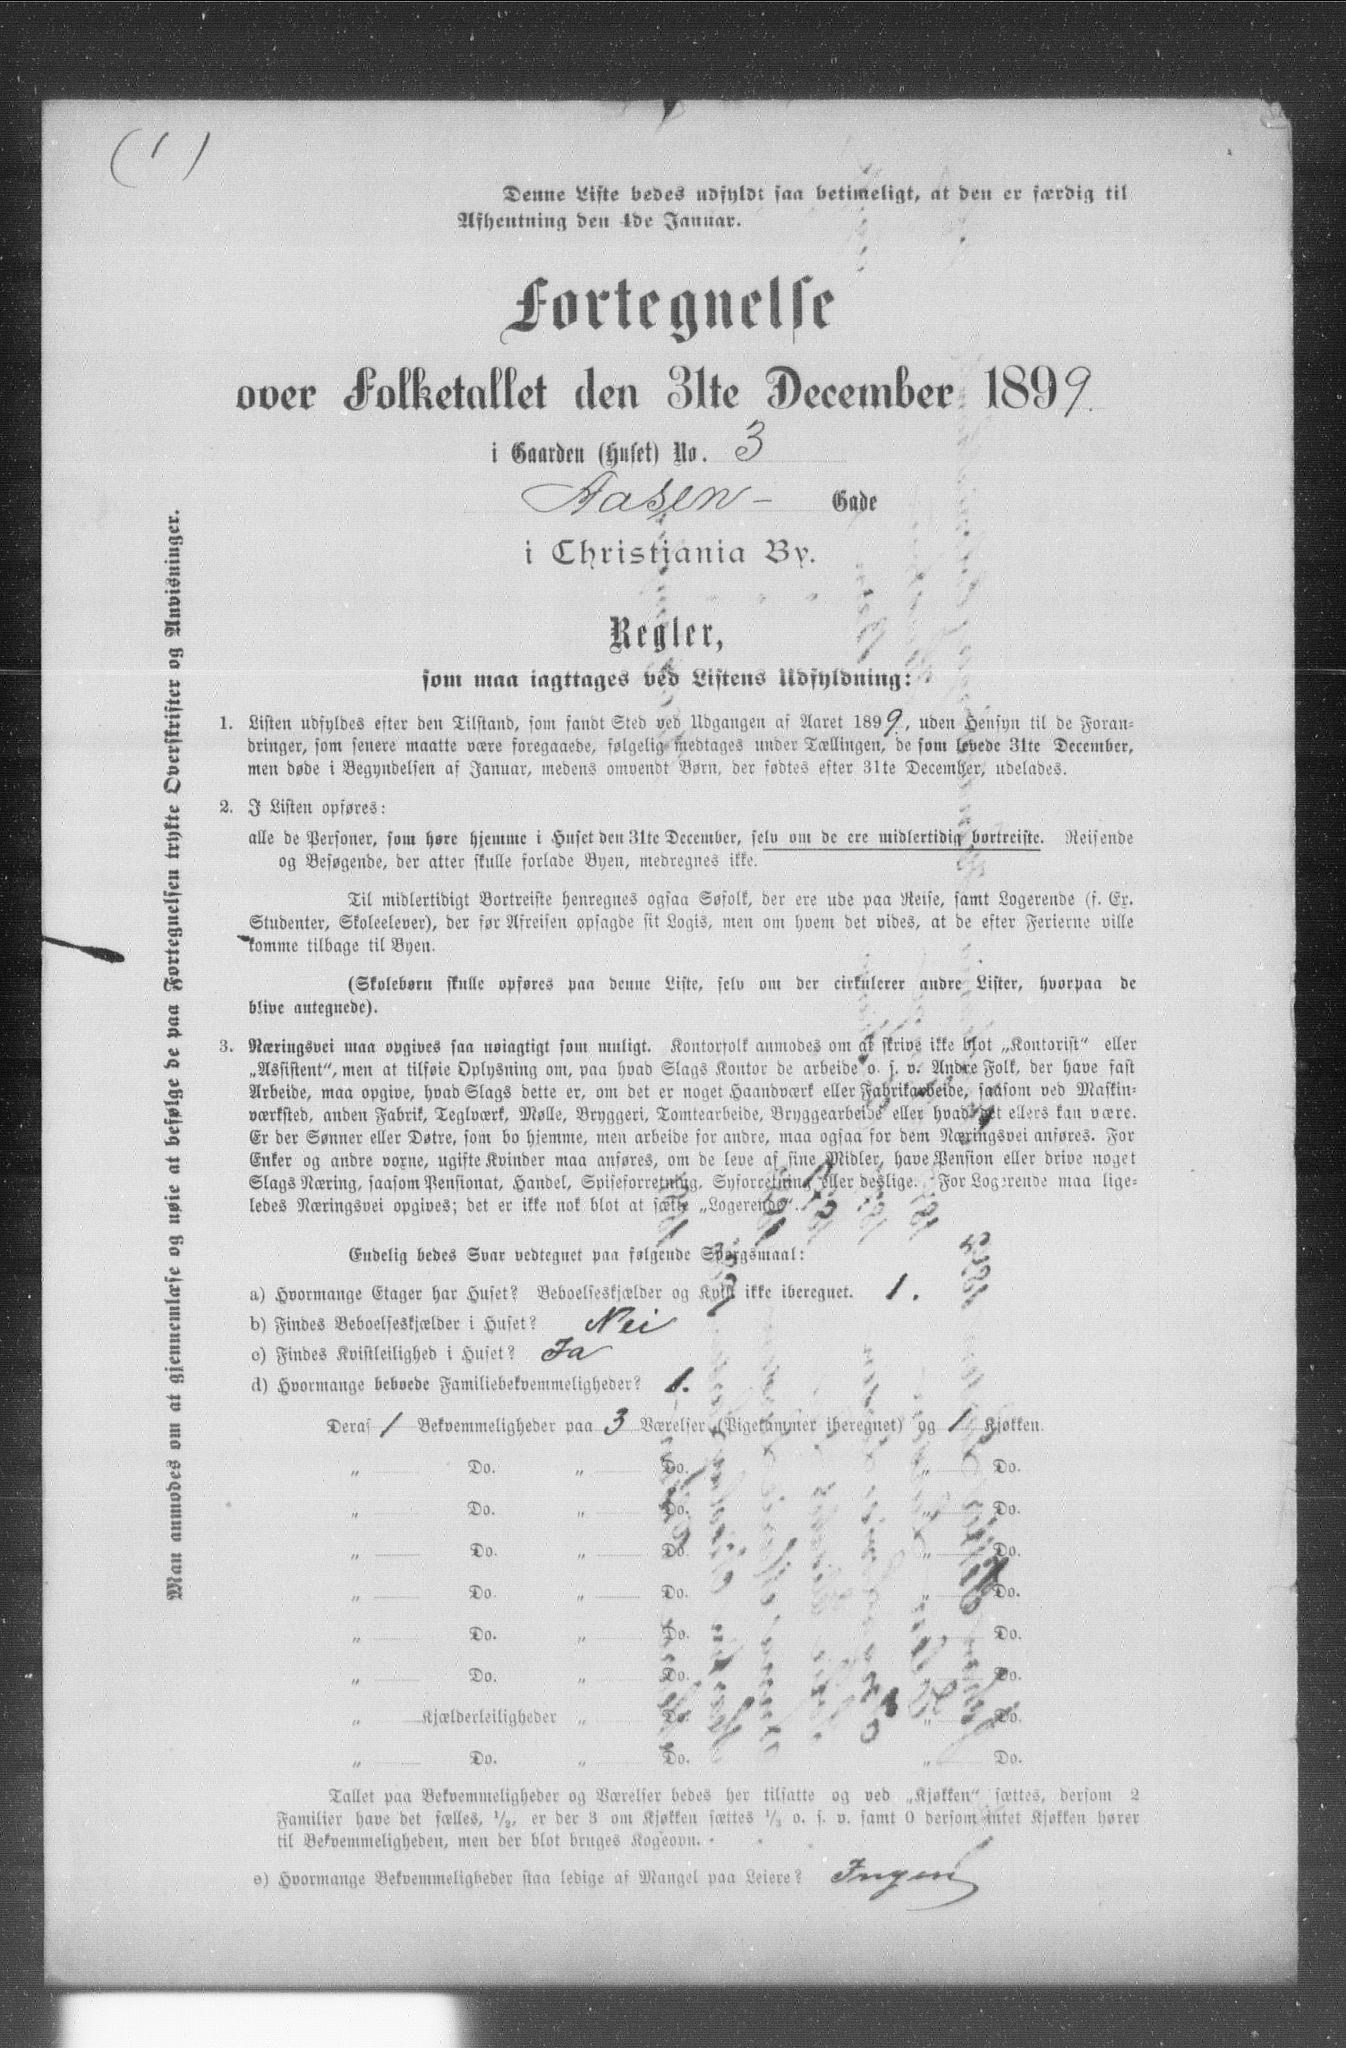 ( 1 )
Denne Liste bedes udfyldt saa betimeligt, at den er færdig til
Afhentning den 4de Januar.
Fortegnelse
over Folketallet den 31te December 1899.
i Gaarden (Huset) No. 3
Aasen- Gade
i Christiania By.
Regler,
som maa iagttages ved Listens Udfyldning:
1. Listen udfyldes efter den Tilstand, som fandt Sted ved Udgangen af Aaret 1899, uden Hensyn til de Foran-
dringer, som senere maatte være foregaaede, følgelig medtages under Tællingen, de som levede 31te December,
men døde i Begyndelsen af Januar, medens omvendt Børn, der fødtes efter 31te December, udelades.
2. I Listen opføres:
alle de Personer, som høre hjemme i Huset den 31te December, selv om de ere midlertidig bortreiste. Reisende
og Besøgende, der atter skulle forlade Byen, medregnes ikke.
Til midlertidigt Bortreiste henregnes ogsaa Søfolk, der ere ude paa Reise, samt Logerende (f. Ex.
Studenter, Skoleelever), der før Afreisen opsagde sit Logis, men om hvem det vides, at de efter Ferierne ville
komme tilbage til Byen.
(Skolebørn skulle opføres paa denne Liste, selv om der cirkulerer andre Lister, hvorpaa de
blive antegnede).
3. Næringsvei maa opgives saa nøiagtigt som muligt. Kontorfolk anmodes om at skrive ikke blot „Kontorist“ eller
„Assistent“, men at tilføie Oplysning om, paa hvad Slags Kontor de arbeide o. s. v. Andre Folk, der have fast
Arbeide, maa opgive, hvad Slags dette er, om det er noget Haandværk eller Fabrikarbeide, saasom ved Maskin-
værksted, anden Fabrik, Teglværk, Mølle, Bryggeri, Tomtearbeide, Bryggearbeide eller hvad det ellers kan være.
Er der Sønner eller Døtre, som bo hjemme, men arbeide for andre, maa ogsaa for dem Næringsvei anføres. For
Enker og andre voxne, ugifte Kvinder maa anføres, om de leve af sine Midler, have Pension eller drive noget
Slags Næring, saasom Pensionat, Handel, Spiseforretning, Syforretning eller deslige. For Logerende maa lige-
ledes Næringsvei opgives; det er ikke nok blot at sætte „Logerende“.
Endelig bedes Svar vedtegnet paa følgende Spørgsmaal:
a) Hvormange Etager har Huset? Beboelseskjælder og Kvist ikke iberegnet. 1.
b) Findes Beboelseskjælder i Huset? Nei
c) Findes Kvistleilighed i Huset? Ja
d) Hvormange beboede Familiebekvemmeligheder? 1.
Deraf 1 Bekvemmeligheder paa 3 Værelser (Pigekammer iberegnet) og 1 Kjøkken.
„ Do. „ Do. „ Do.
„ Do. „ Do. „ Do.
„ Do. „ Do. „ Do.
„ Do. „ Do. „ Do.
„ Do. „ Do. „ Do.
„ Do. „ Do. „ Do.
„ Kjælderleiligheder „ Do. „ Do.
„ Do. „ Do. „ Do.
Tallet paa Bekvemmeligheder og Værelser bedes her tilsatte og ved „Kjøkken“ sættes, dersom 2
Familier have det fælles, 1/2, er der 3 om Kjøkken sættes 1/3 o. s. v. samt 0 dersom intet Kjøkken hører
til Bekvemmeligheden, men der blot bruges Kogeovn.
e) Hvormange Bekvemmeligheder staa ledige af Mangel paa Leiere? Ingen
Man anmodes om at gjennemlæse og nøie at befølge de paa Fortegnelsen trykte Overskrifter og Anvisninger.